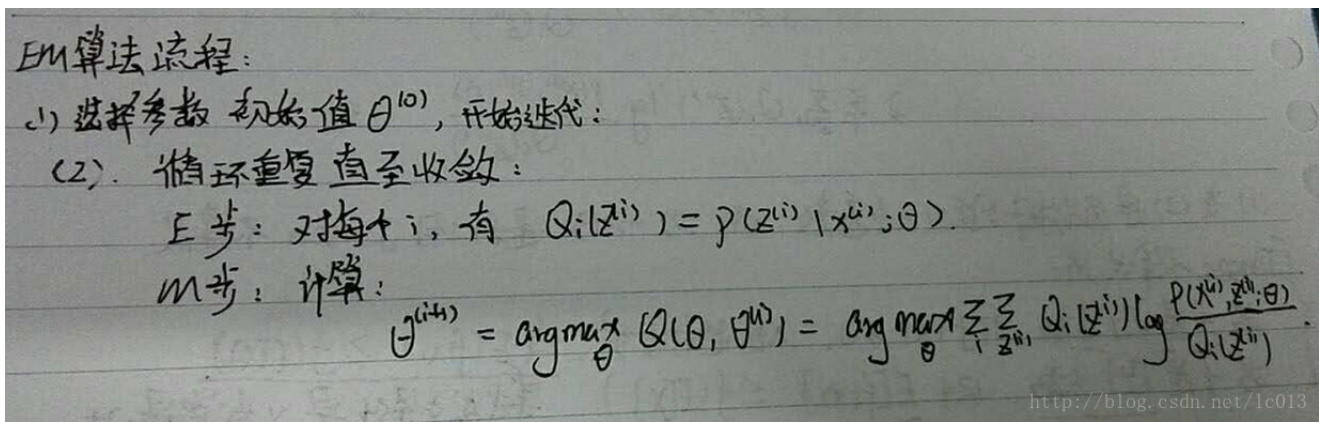 EM算法流程:
(1) 选择参数 初始值 θ^(0), 开始迭代:
(2). 循环重复直至收敛:
E步: 对每个i, 有 Q_i(z^(i)) = P(z^(i) | x^(i); θ).
M步: 计算:
θ^(i+1) = argmax_θ Q(θ, θ^(i)) = arg max_θ Σ_i Σ_{z^(i)} Q_i(z^(i)) log P(x^(i), z^(i); θ) / Q_i(z^(i)).
http://blog.csdn.net/lc013